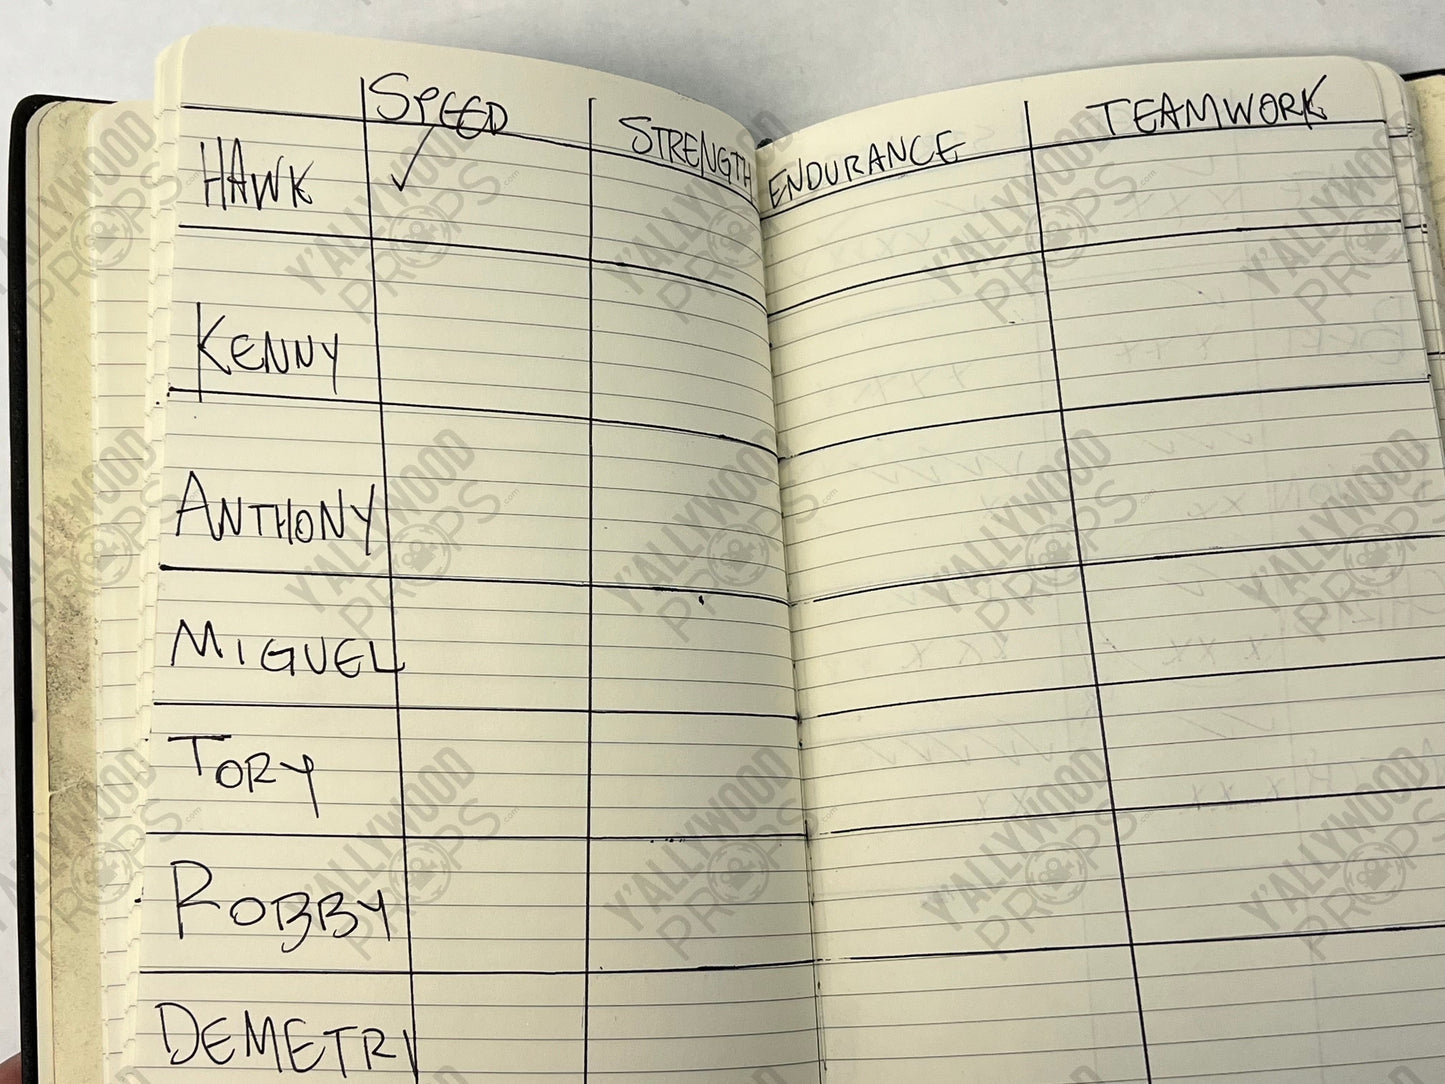 SPEED STRENGTH ENDURANCE TEAMWORK
HAWK ✓
KENNY
ANTHONY
MIGUEL
TORY
ROBBY
DEMETRI
Y'ALLYWOOD
PROPS.com